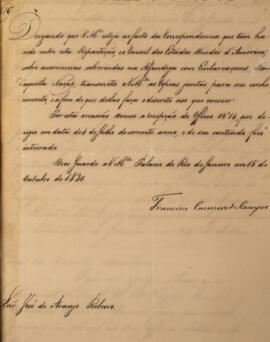 Dezejando que V. M.ce esteja ao facto da Correspondencia que tem ha-
vido entre esta Repartição, e o Consul dos Estados Unidos d'America
sobre occorrencias sobrevindas na Alfandega com Embarcaçoens
daquella Nação, transmitto a V. M.ce as Copias juntas para seu conhe-
cimento, e a fim de que dellas faça o discreto uso que convier.
Por esta occasião accuso a recepção do Officio N.º 14, que di-
rigio em data de 6 de Julho do corrente anno, e de seu contheudo fico
inteirado.
Deos Guarde a V. M.ce Palacio do Rio de Janeiro em 15 de
Outubro de 1830.
Francisco Carneiro de Campos
Snr. José de Araujo Ribeiro.